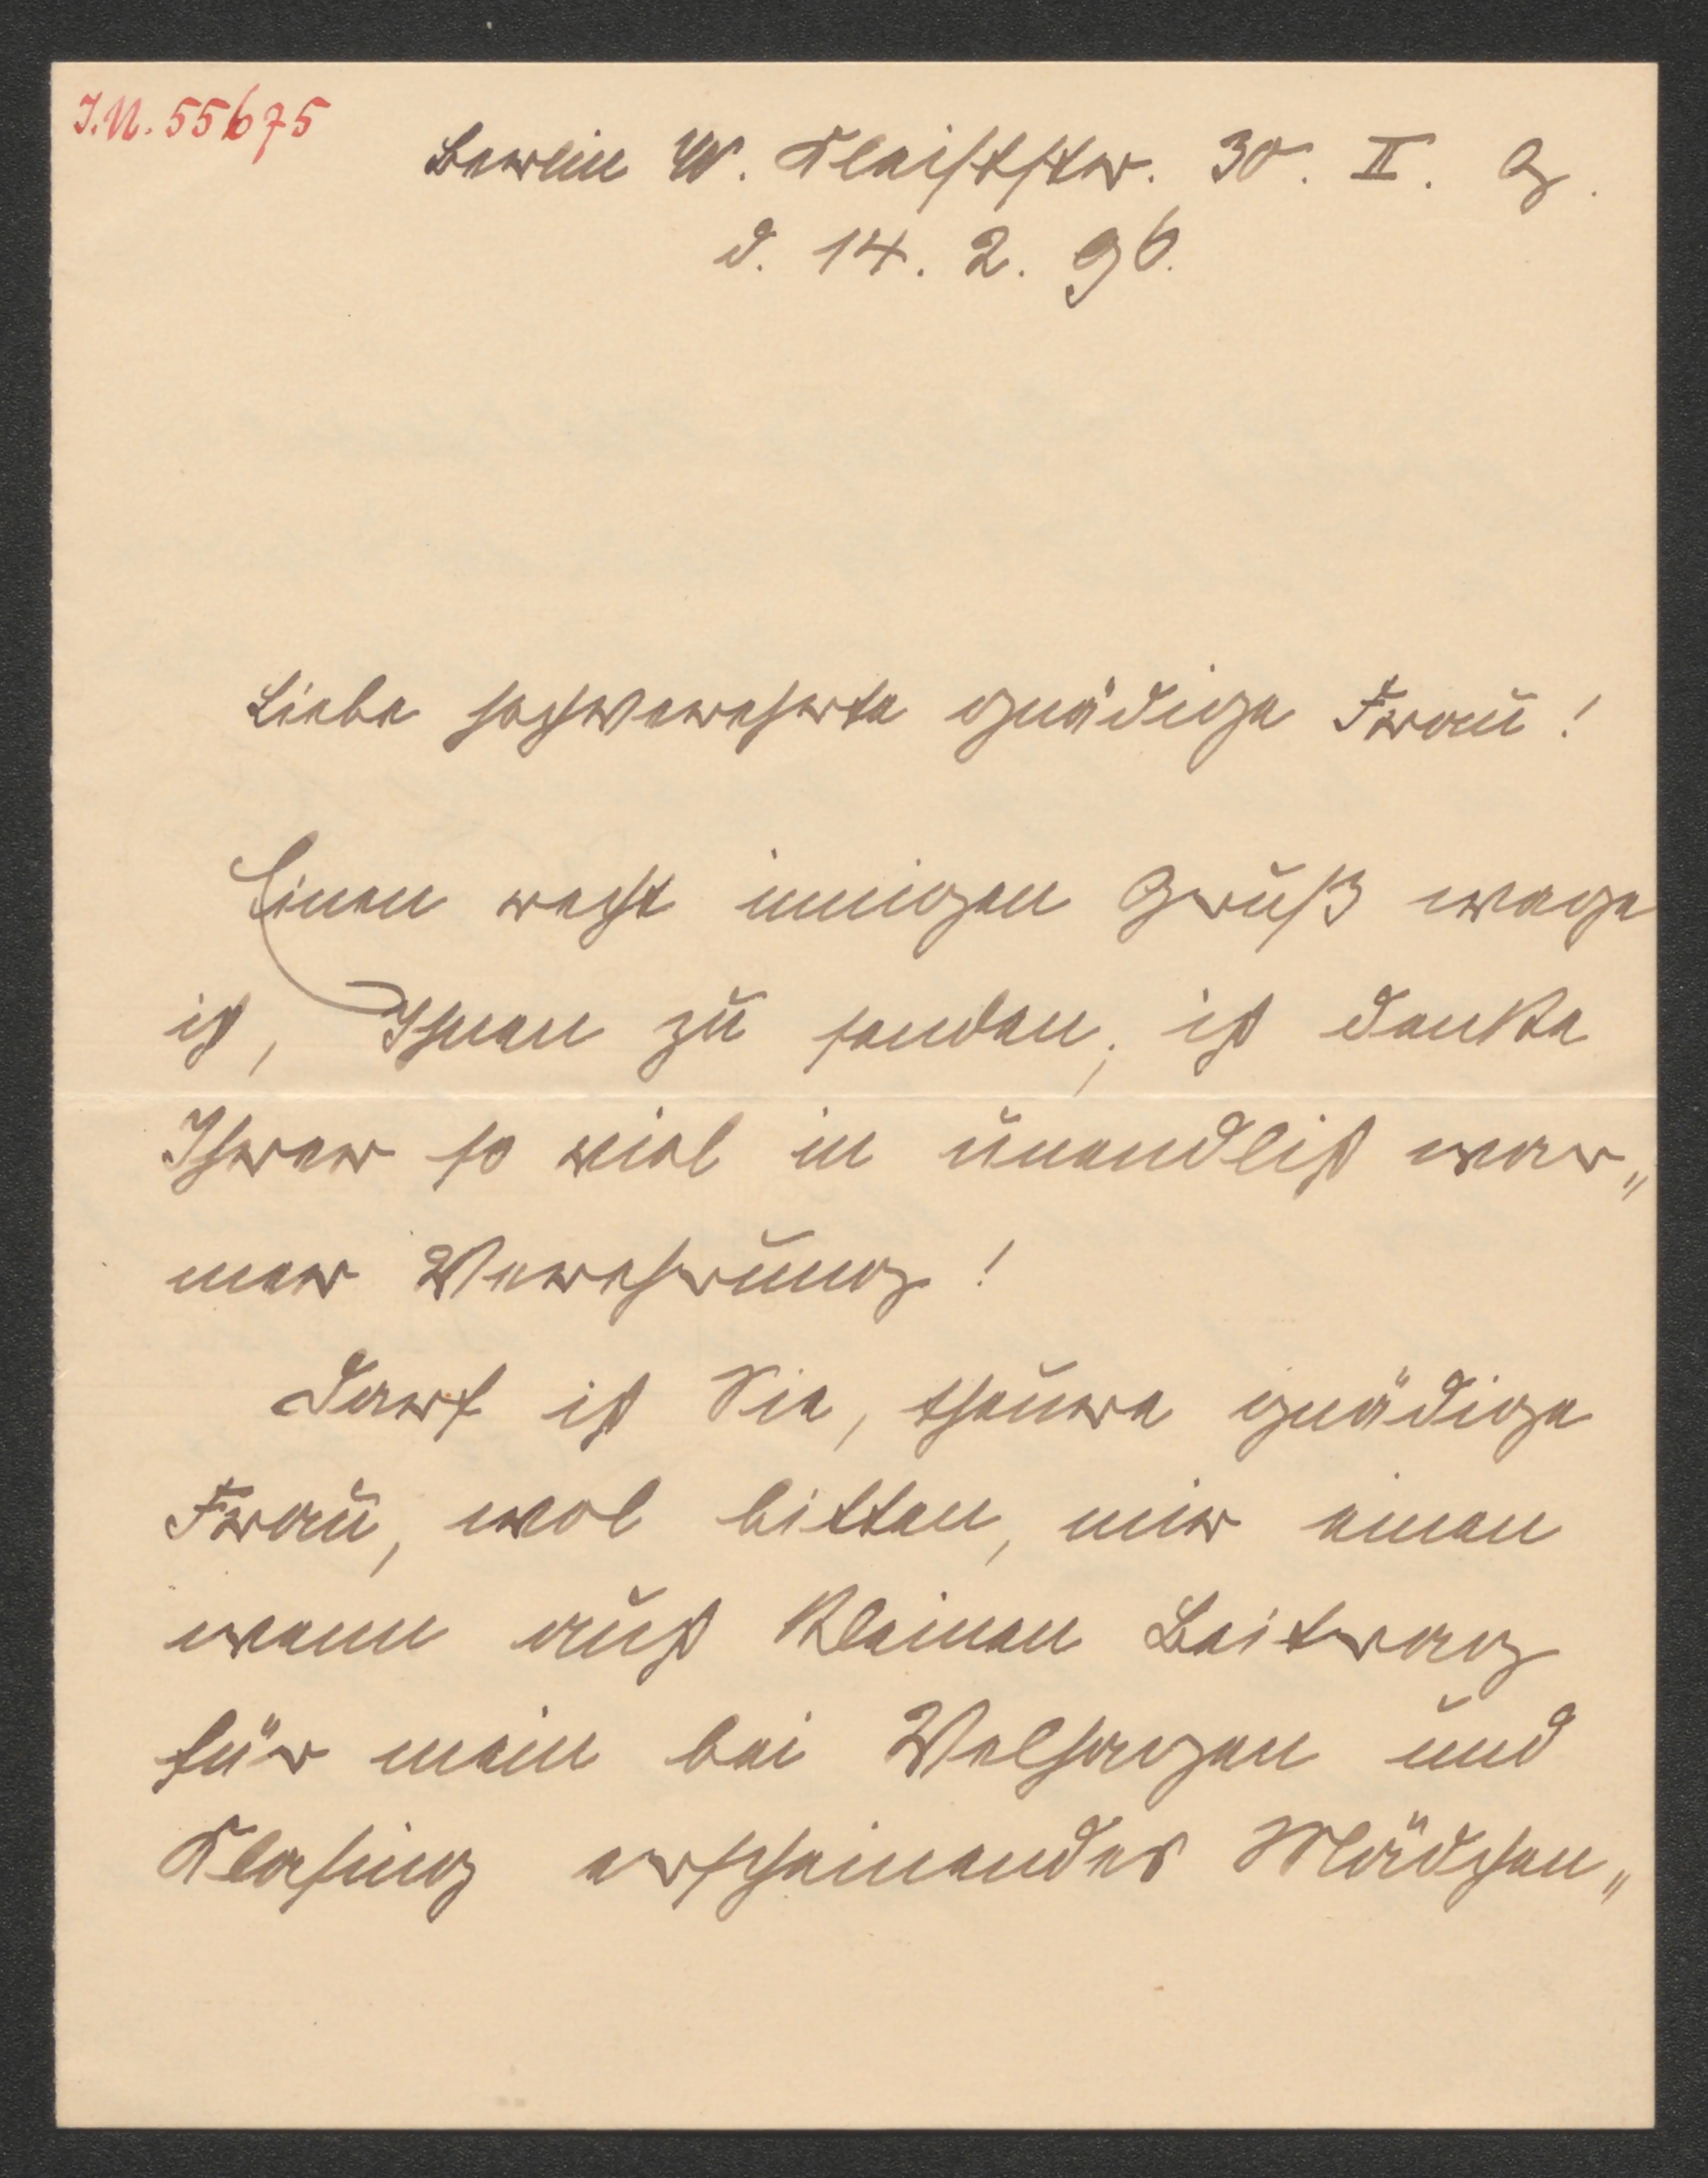 I.N. 55675
Berlin W. Kleiststr. 30. II. G.
d. 14. 2. 96.
Liebe hochverehrte gnädige Frau!
Einen recht innigen Gruß wage
ich, Ihnen zu senden, ich denke
Ihrer so viel in unendlich war„
mer Verehrung!
Darf ich Sie, theure gnädige
Frau, wol bitten, mir einen
wenn auch kleinen Beitrag
für mein bei Velhagen und
Klasing erscheinendes Mädchen„